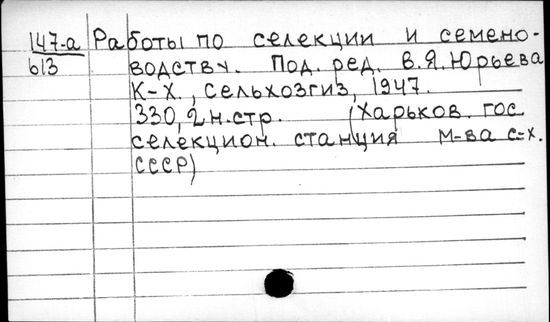 147-а Работы по селекции и семено-
613 водству. Под. ред. В.Я.Юрьева
К-Х., Сельхозгиз, 1947.
330, 2 н.стр. (Харьков. гос
селекцион. станция М-ва с=х.
СССР)